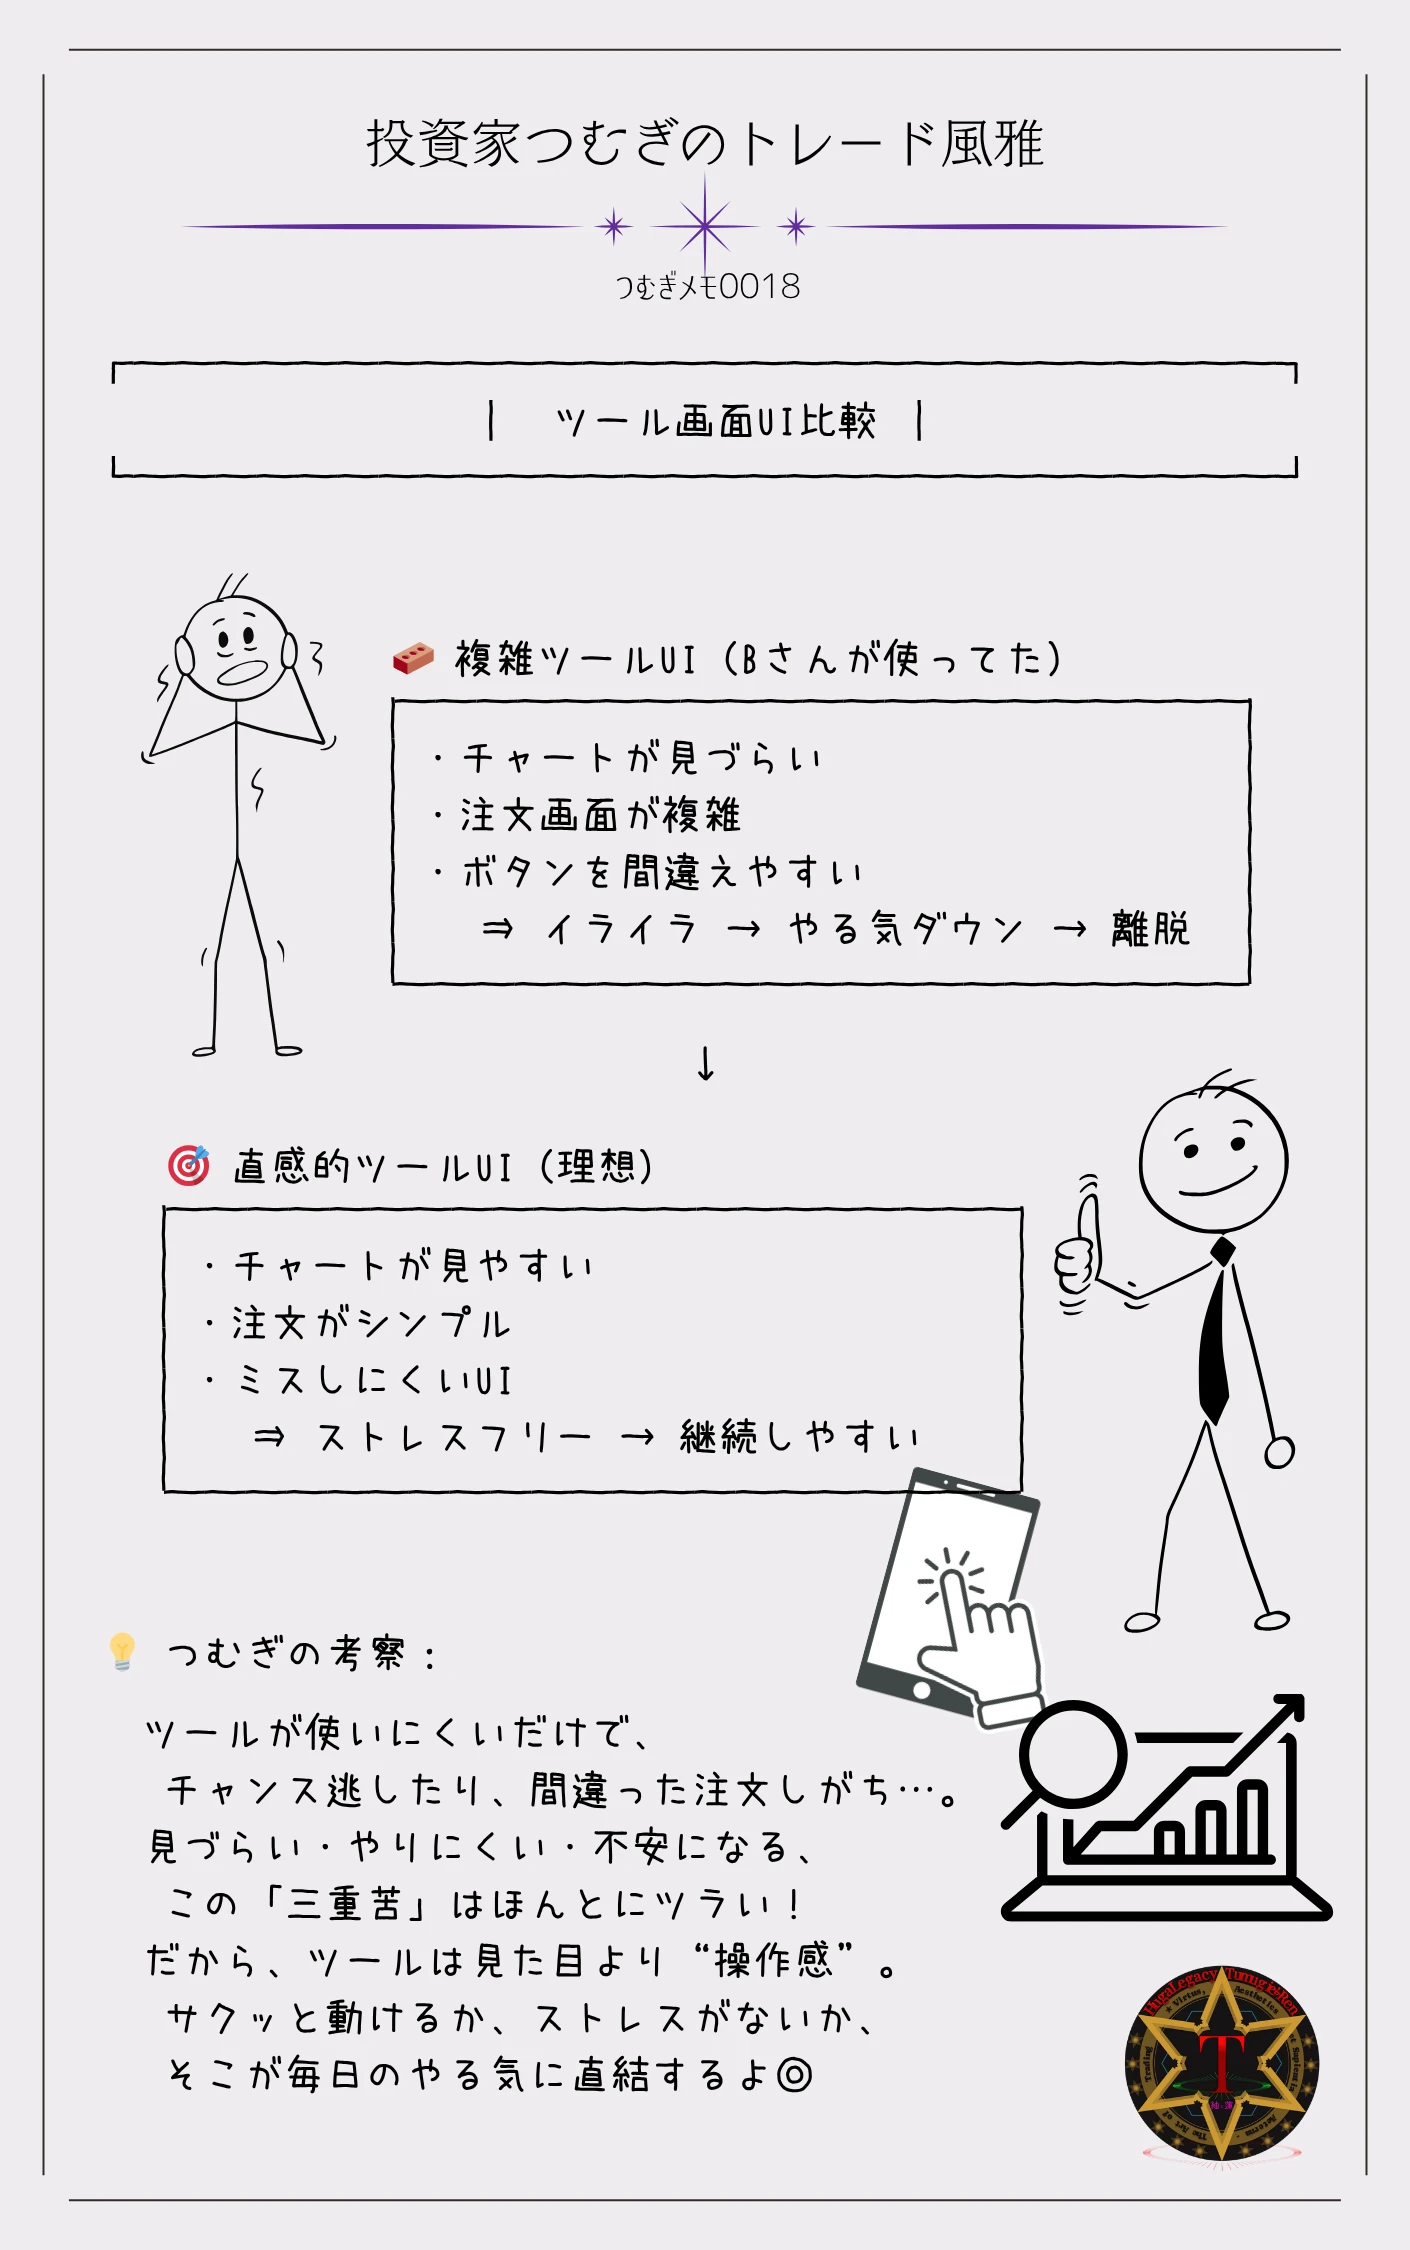 投資家つむぎのトレード風雅
つむぎメモ0018
| ツール画面UI比較 |
複雑ツールUI（Bさんが使ってた）
・チャートが見づらい
・注文画面が複雑
・ボタンを間違えやすい
⇒ イライラ → やる気ダウン → 離脱
↓
直感的ツールUI（理想）
・チャートが見やすい
・注文がシンプル
・ミスしにくいUI
⇒ ストレスフリー → 継続しやすい
つむぎの考察：
ツールが使いにくいだけで、
チャンス逃したり、間違った注文しがち…。
見づらい・やりにくい・不安になる、
この「三重苦」はほんとにツラい！
だから、ツールは見た目より“操作感”。
サクッと動けるか、ストレスがないか、
そこが毎日のやる気に直結するよ◎
HugaLegacy Tumugi&Ren
Virtus, Aesthetics
Trading
The Art of
Aeterna
T